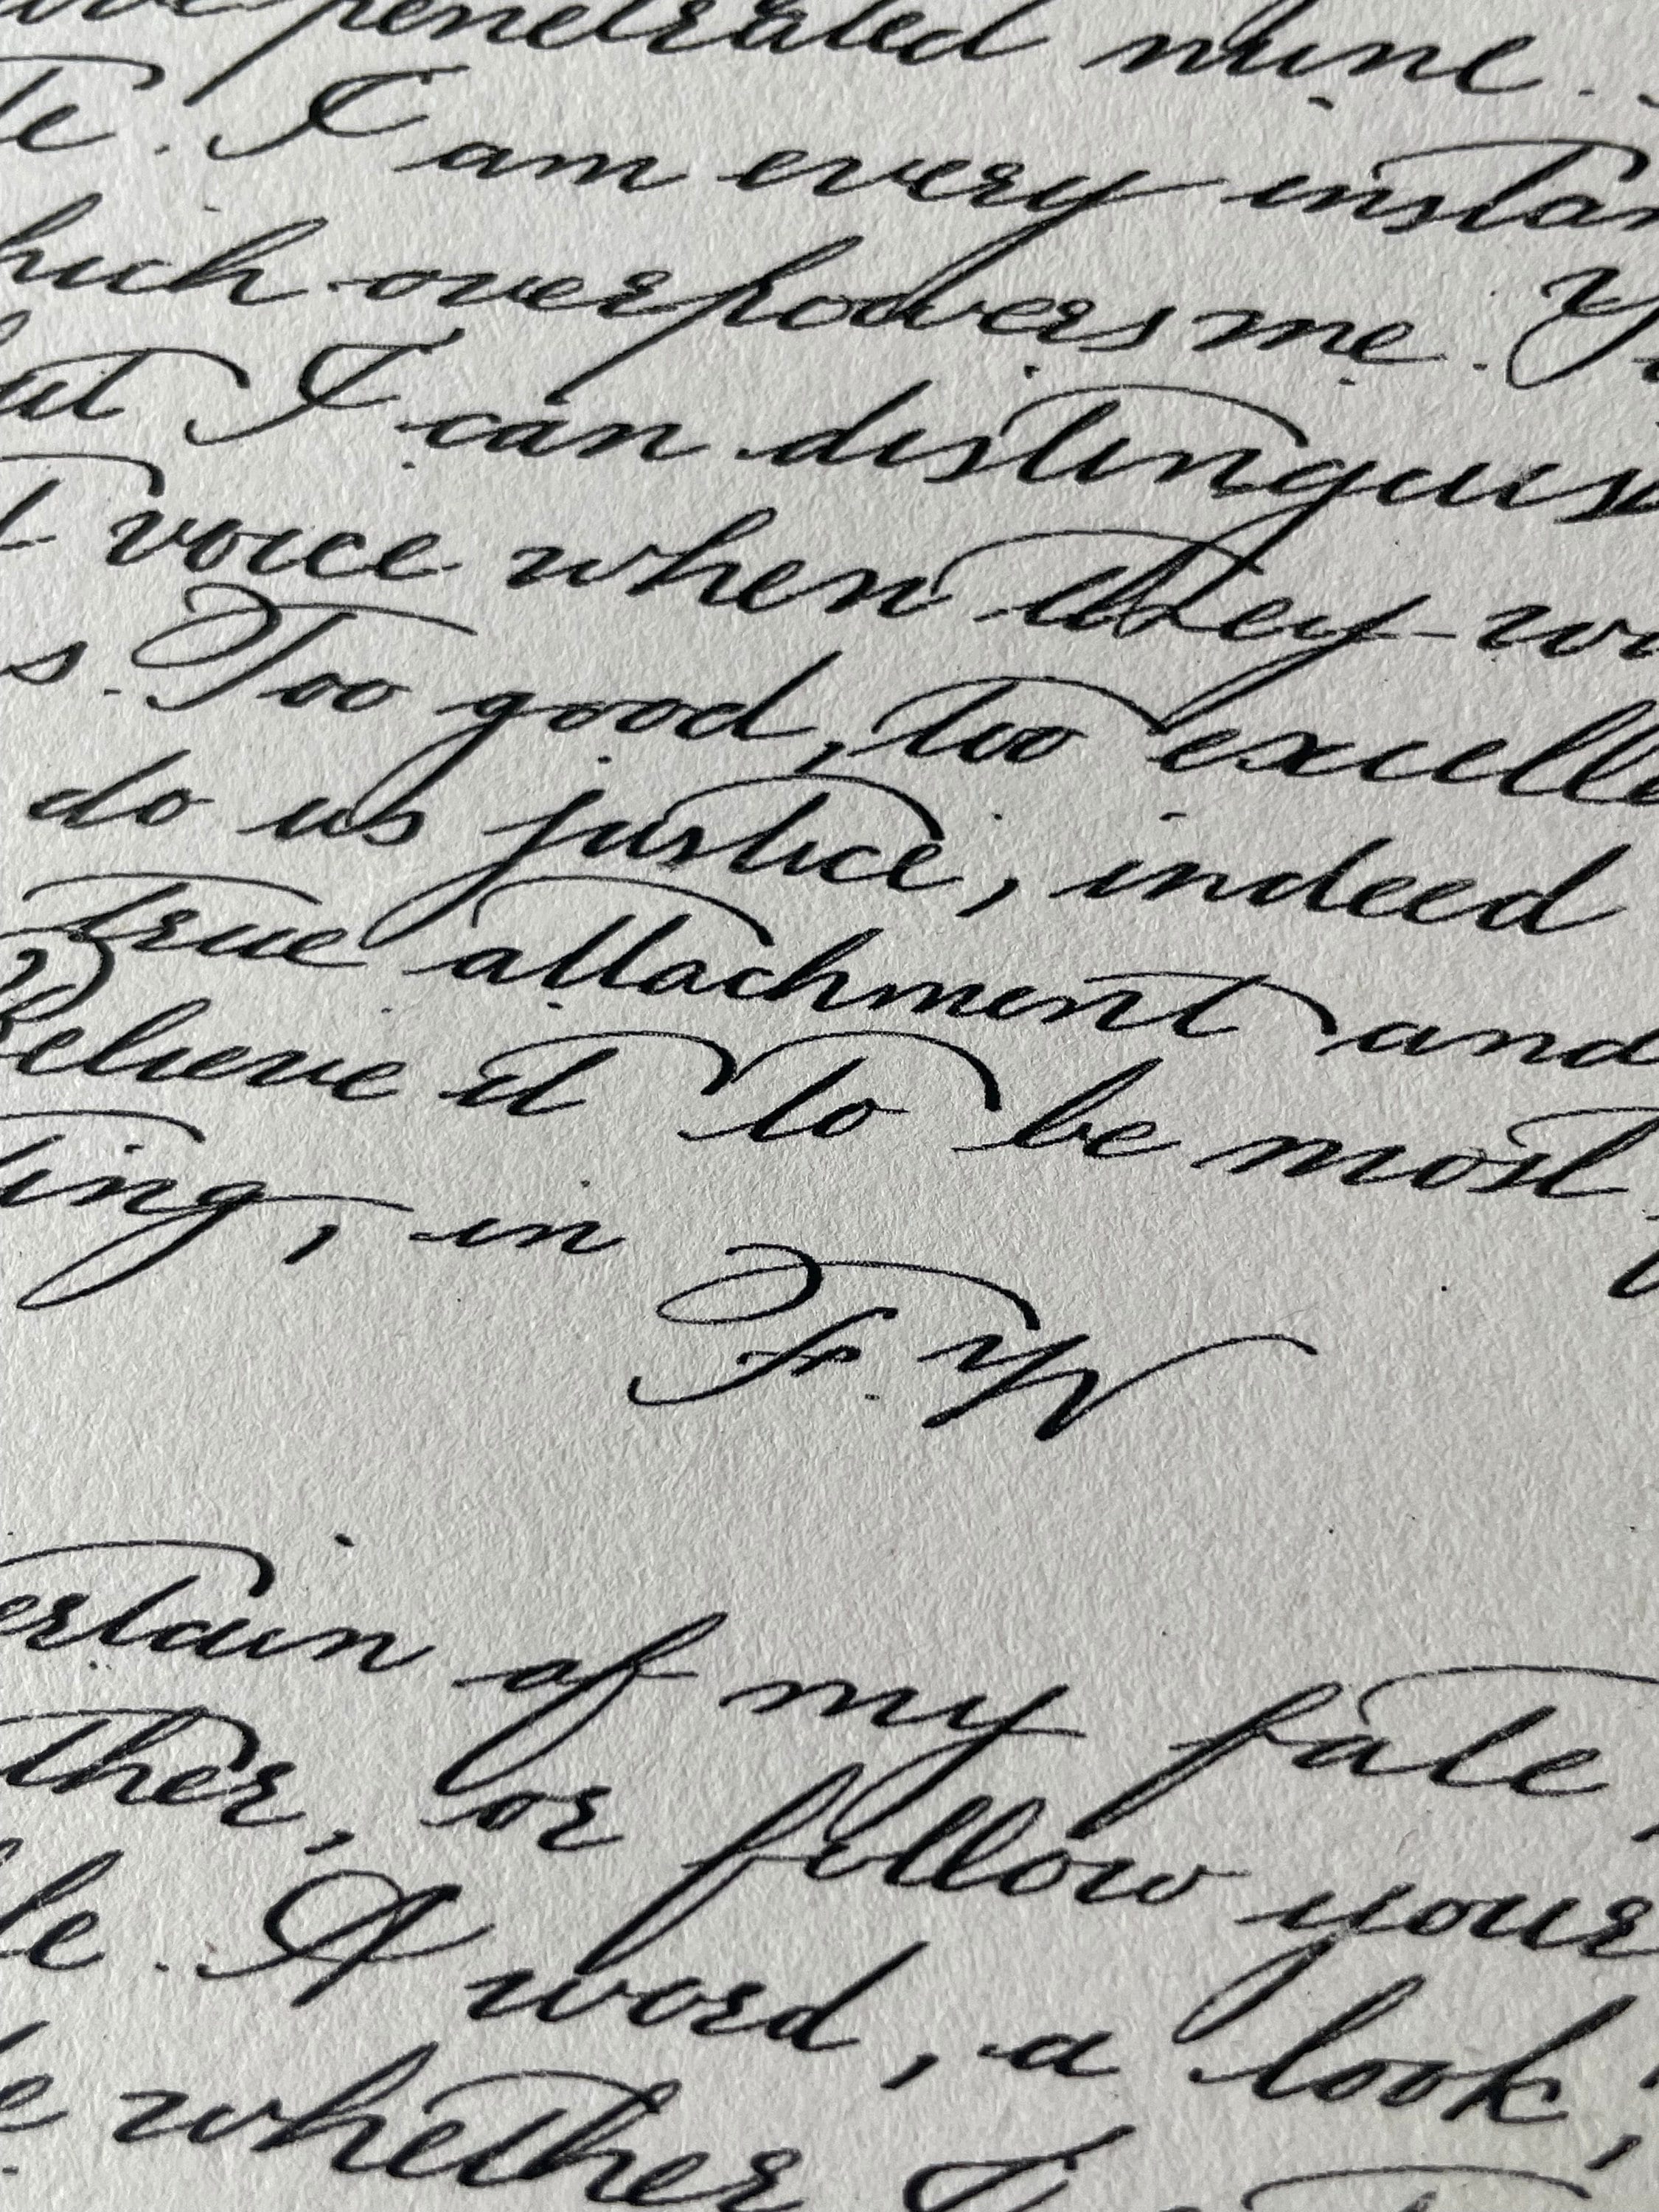 penetrated mine.
te. I am every instan
hich overpowers me. Y
ut I can distinguis
t voice when they wo
s. Too good, too excelle
do us justice, indeed
true attachment and
Believe it to be most
ting, in
F. W
ertain of my fate,
ther, or follow your
le. A word, a look,
e whether I